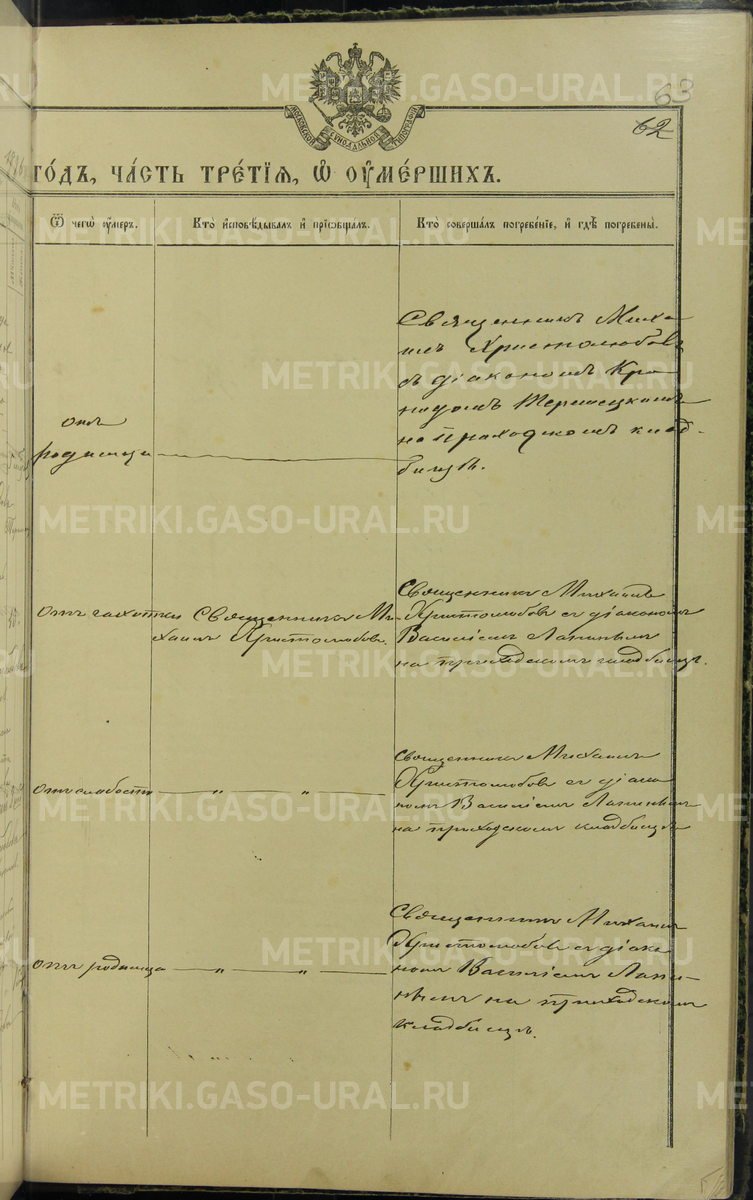 METRIKI.GASO-URAL.RU
63
62
МОСКОВСКОЙ СѴНОДАЛЬНОЙ ТИПОГРАФІИ
го́дъ, ча́сть тре́тїѧ, ѡ҆ ᲂу҆ме́ршихъ.
Ѿ чегѡ̀ ᲂу҆́меръ.
Кто̀ и҆сповѣ́дывалъ и҆ прїѡбща́лъ.
Кто̀ соверша́лъ погребе́нїе, и҆ гдѣ̀ погребены̀.
отъ
родимца
Священникъ Миха-
илъ Христолюбовъ
съ діакономъ
на приходскомъ клад-
бищѣ.
отъ чахотки
Священникъ Ми-
хаилъ Христолюбовъ.
Священникъ Михаилъ
Христолюбовъ съ діакономъ
Василіемъ Лапинымъ
на приходскомъ кладбищѣ.
отъ слабости
— „ — „ —
Священникъ Михаилъ
Христолюбовъ съ діако
номъ Василіемъ Лапинымъ
на приходскомъ кладбищѣ
отъ родимца
— „ — „ —
Священникъ Михаилъ
Христолюбовъ съ діако
номъ Василіемъ Лапи-
нымъ на приходскомъ
кладбищѣ.